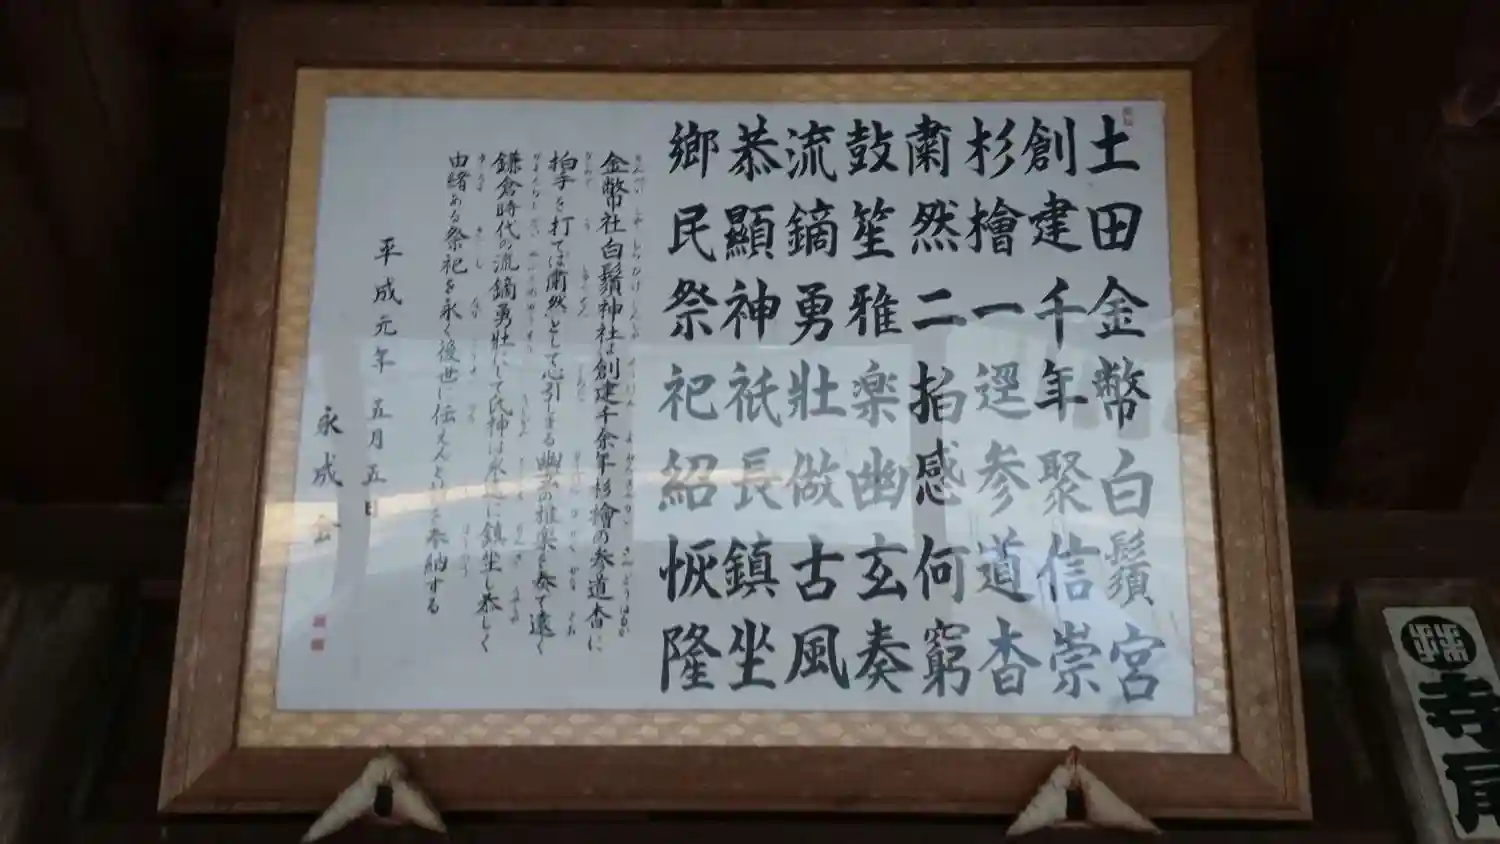 土田金幣白鬚宮
創建千年聚信崇
杉檜一逕参道杳
粛然二拍感何窮
鼓笙雅楽幽玄奏
流鏑勇壮倣古風
恭顯神祇長鎮坐
郷民祭祀紹恢隆
金幣社白鬚神社は創建千余年杉檜の参道杳に
拍手を打てば粛然として心引しまる幽玄の雅楽を奏で遠く
鎌倉時代の流鏑勇壮にして氏神は永遠に鎮坐し恭しく
由緒ある祭祀を永く後世に伝えんと奉納する
平成元年 五月五日
永成会
寺尾